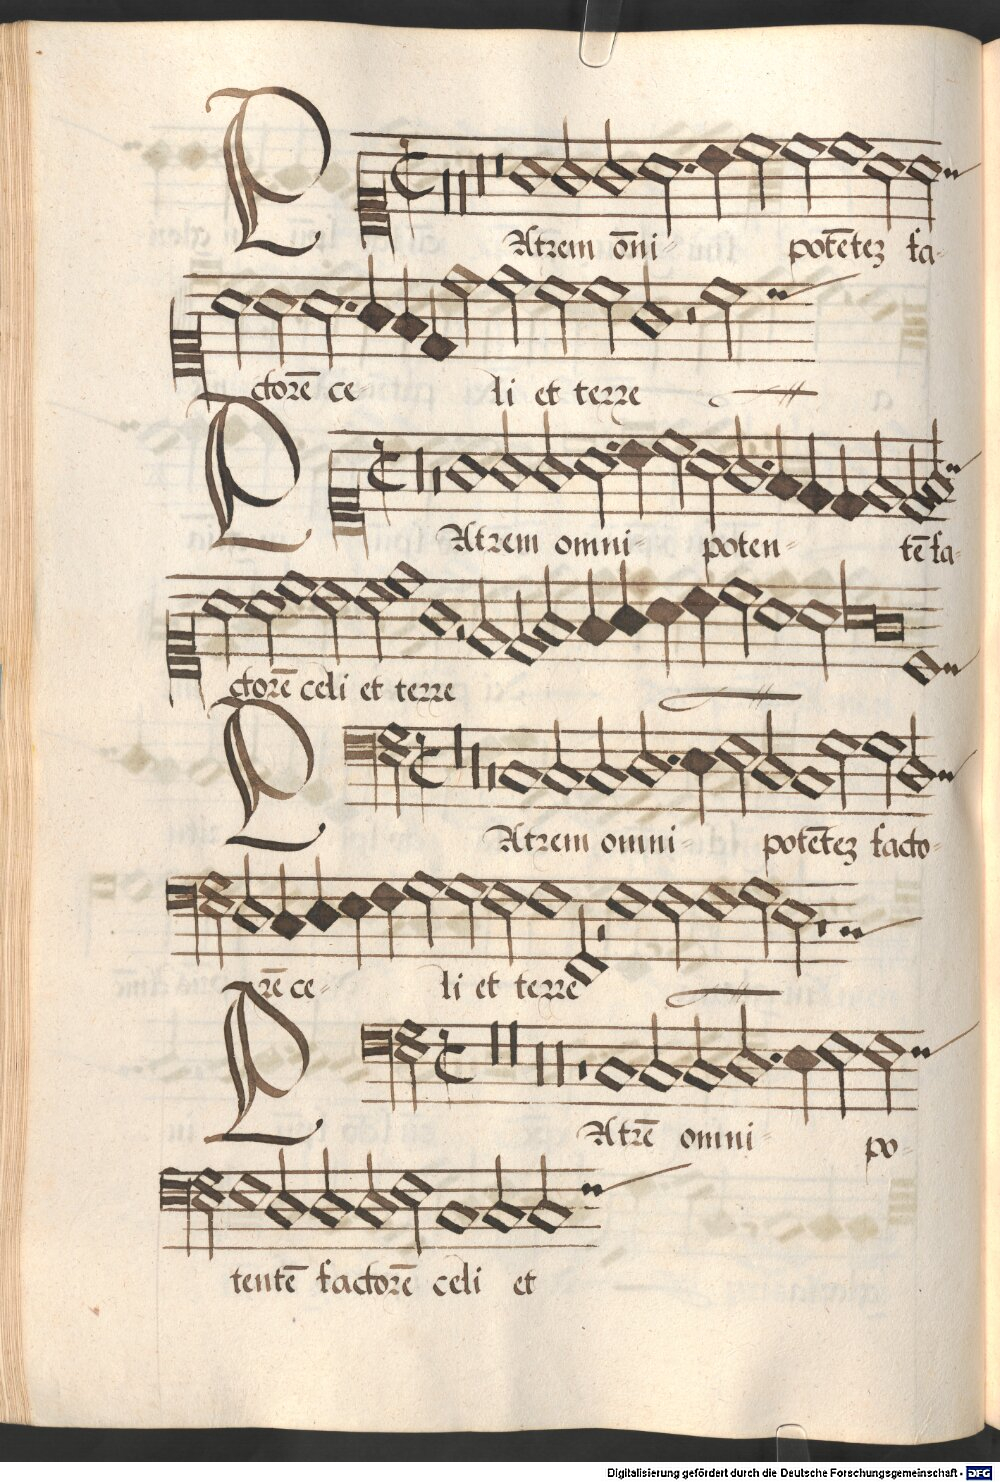 PAtrem om̄i- potētez fa-
ctorē ce- li et terre
PAtrem omni- poten- tē fa-
ctorē celi et terre
PAtrem omni- potētez facto-
rē ce- li et terre
PAtrē omni- po-
tentē factorē celi et
Digitalisierung gefördert durch die Deutsche Forschungsgemeinschaft - DFG